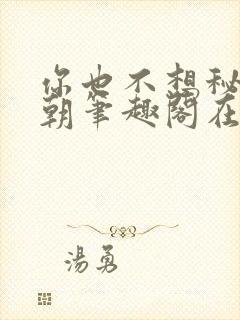 你也不想秘
朝笔趣阁在
湯勇